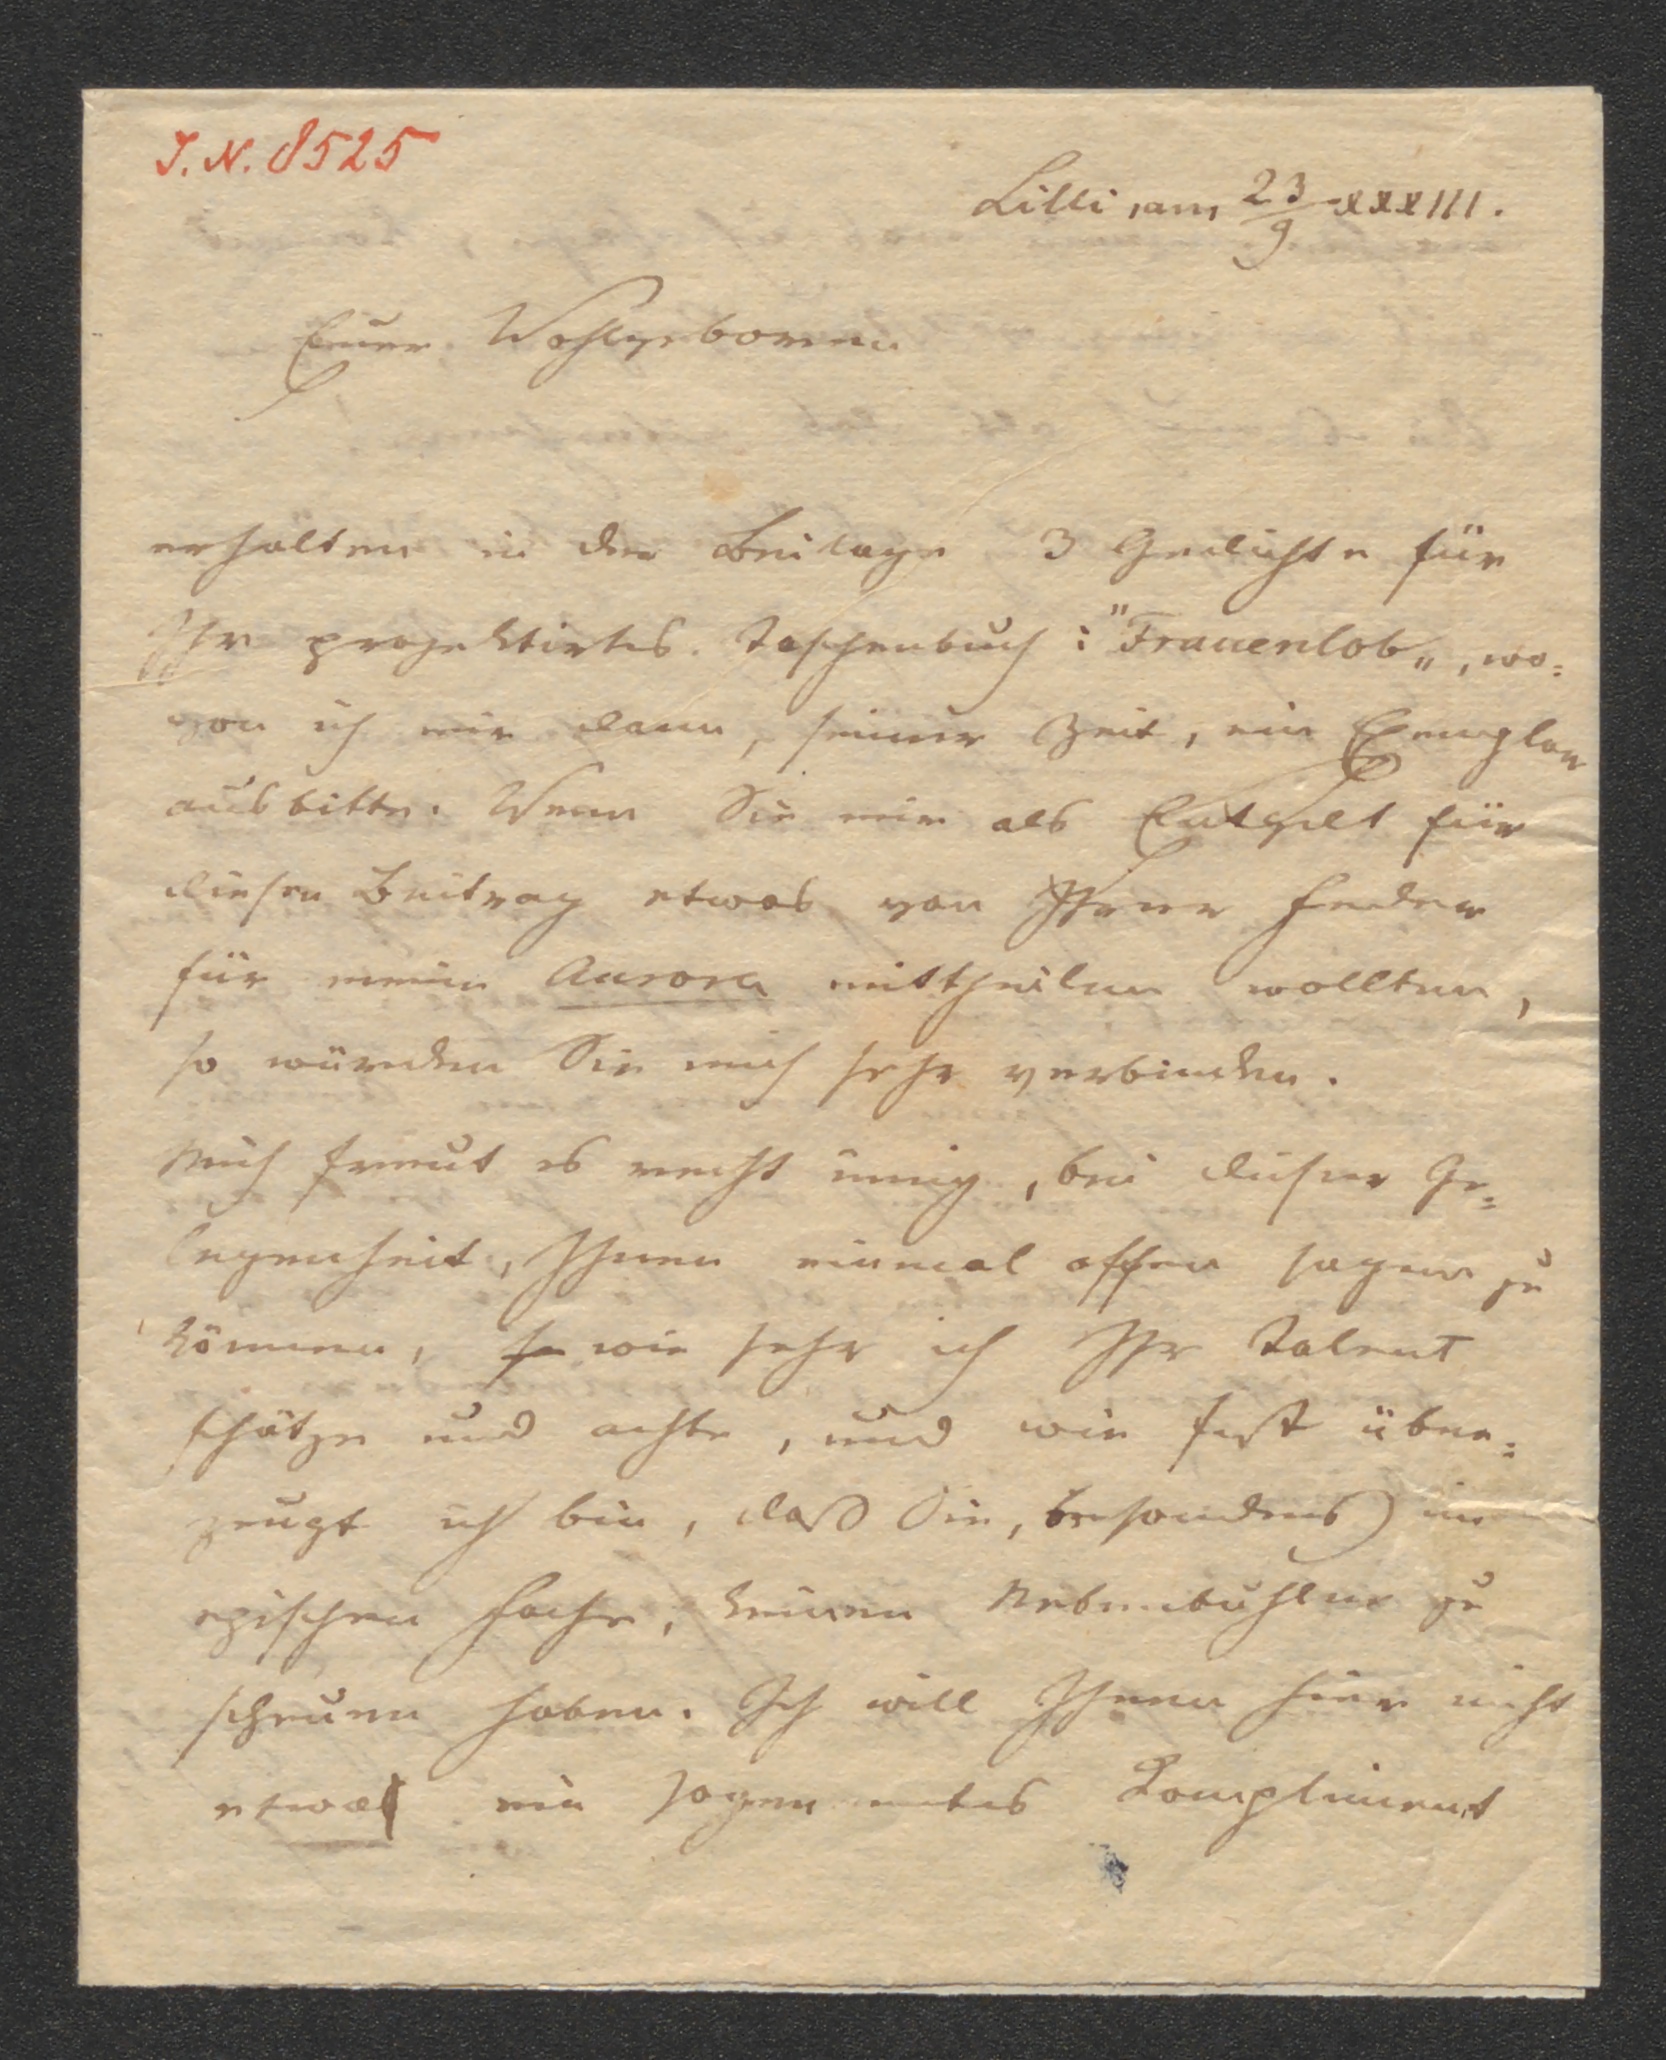 I. N. 8525
Lilli, am 23/9 XXXIII.
Euer Wohlgeboren
erhalten in der Beilage 3 Gedichte für
Ihr projektirtes Taschenbuch: "Frauenlob„, wo=
von ich mir dann, seiner Zeit, ein Exemplar
ausbitte. Wenn Sie mir als Entgelt für
diesen Beitrag etwas von Ihrer Feder
für meine Aurora mittheilen wollten,
so würden Sie mich sehr verbinden.
Mich freut es recht innig, bei dieser Ge=
legenheit, Ihnen einmal offen sagen zu
können, wie sehr ich Ihr Talent
schätze und achte, und wie fest über=
zeugt ich bin, daß Sie, besonders im
epischen Fache, keinen Nebenbuhler zu
scheuen haben. Ich will Ihnen hier nicht
etwa ein sogenanntes Compliment